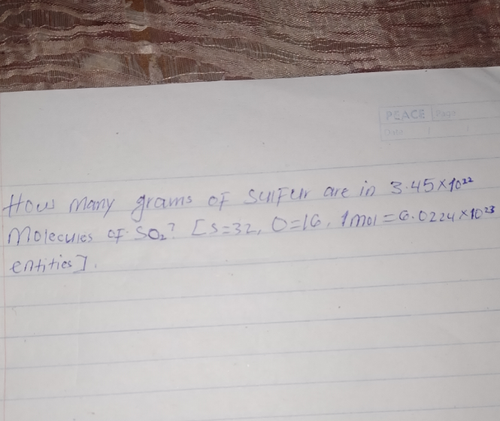 PEACE
Page
Date
How many grams of sulfur are in 3.45×10²²
Molecules of SO₂? [S=32, O=16, 1mol=6.0224×10²³
entities].